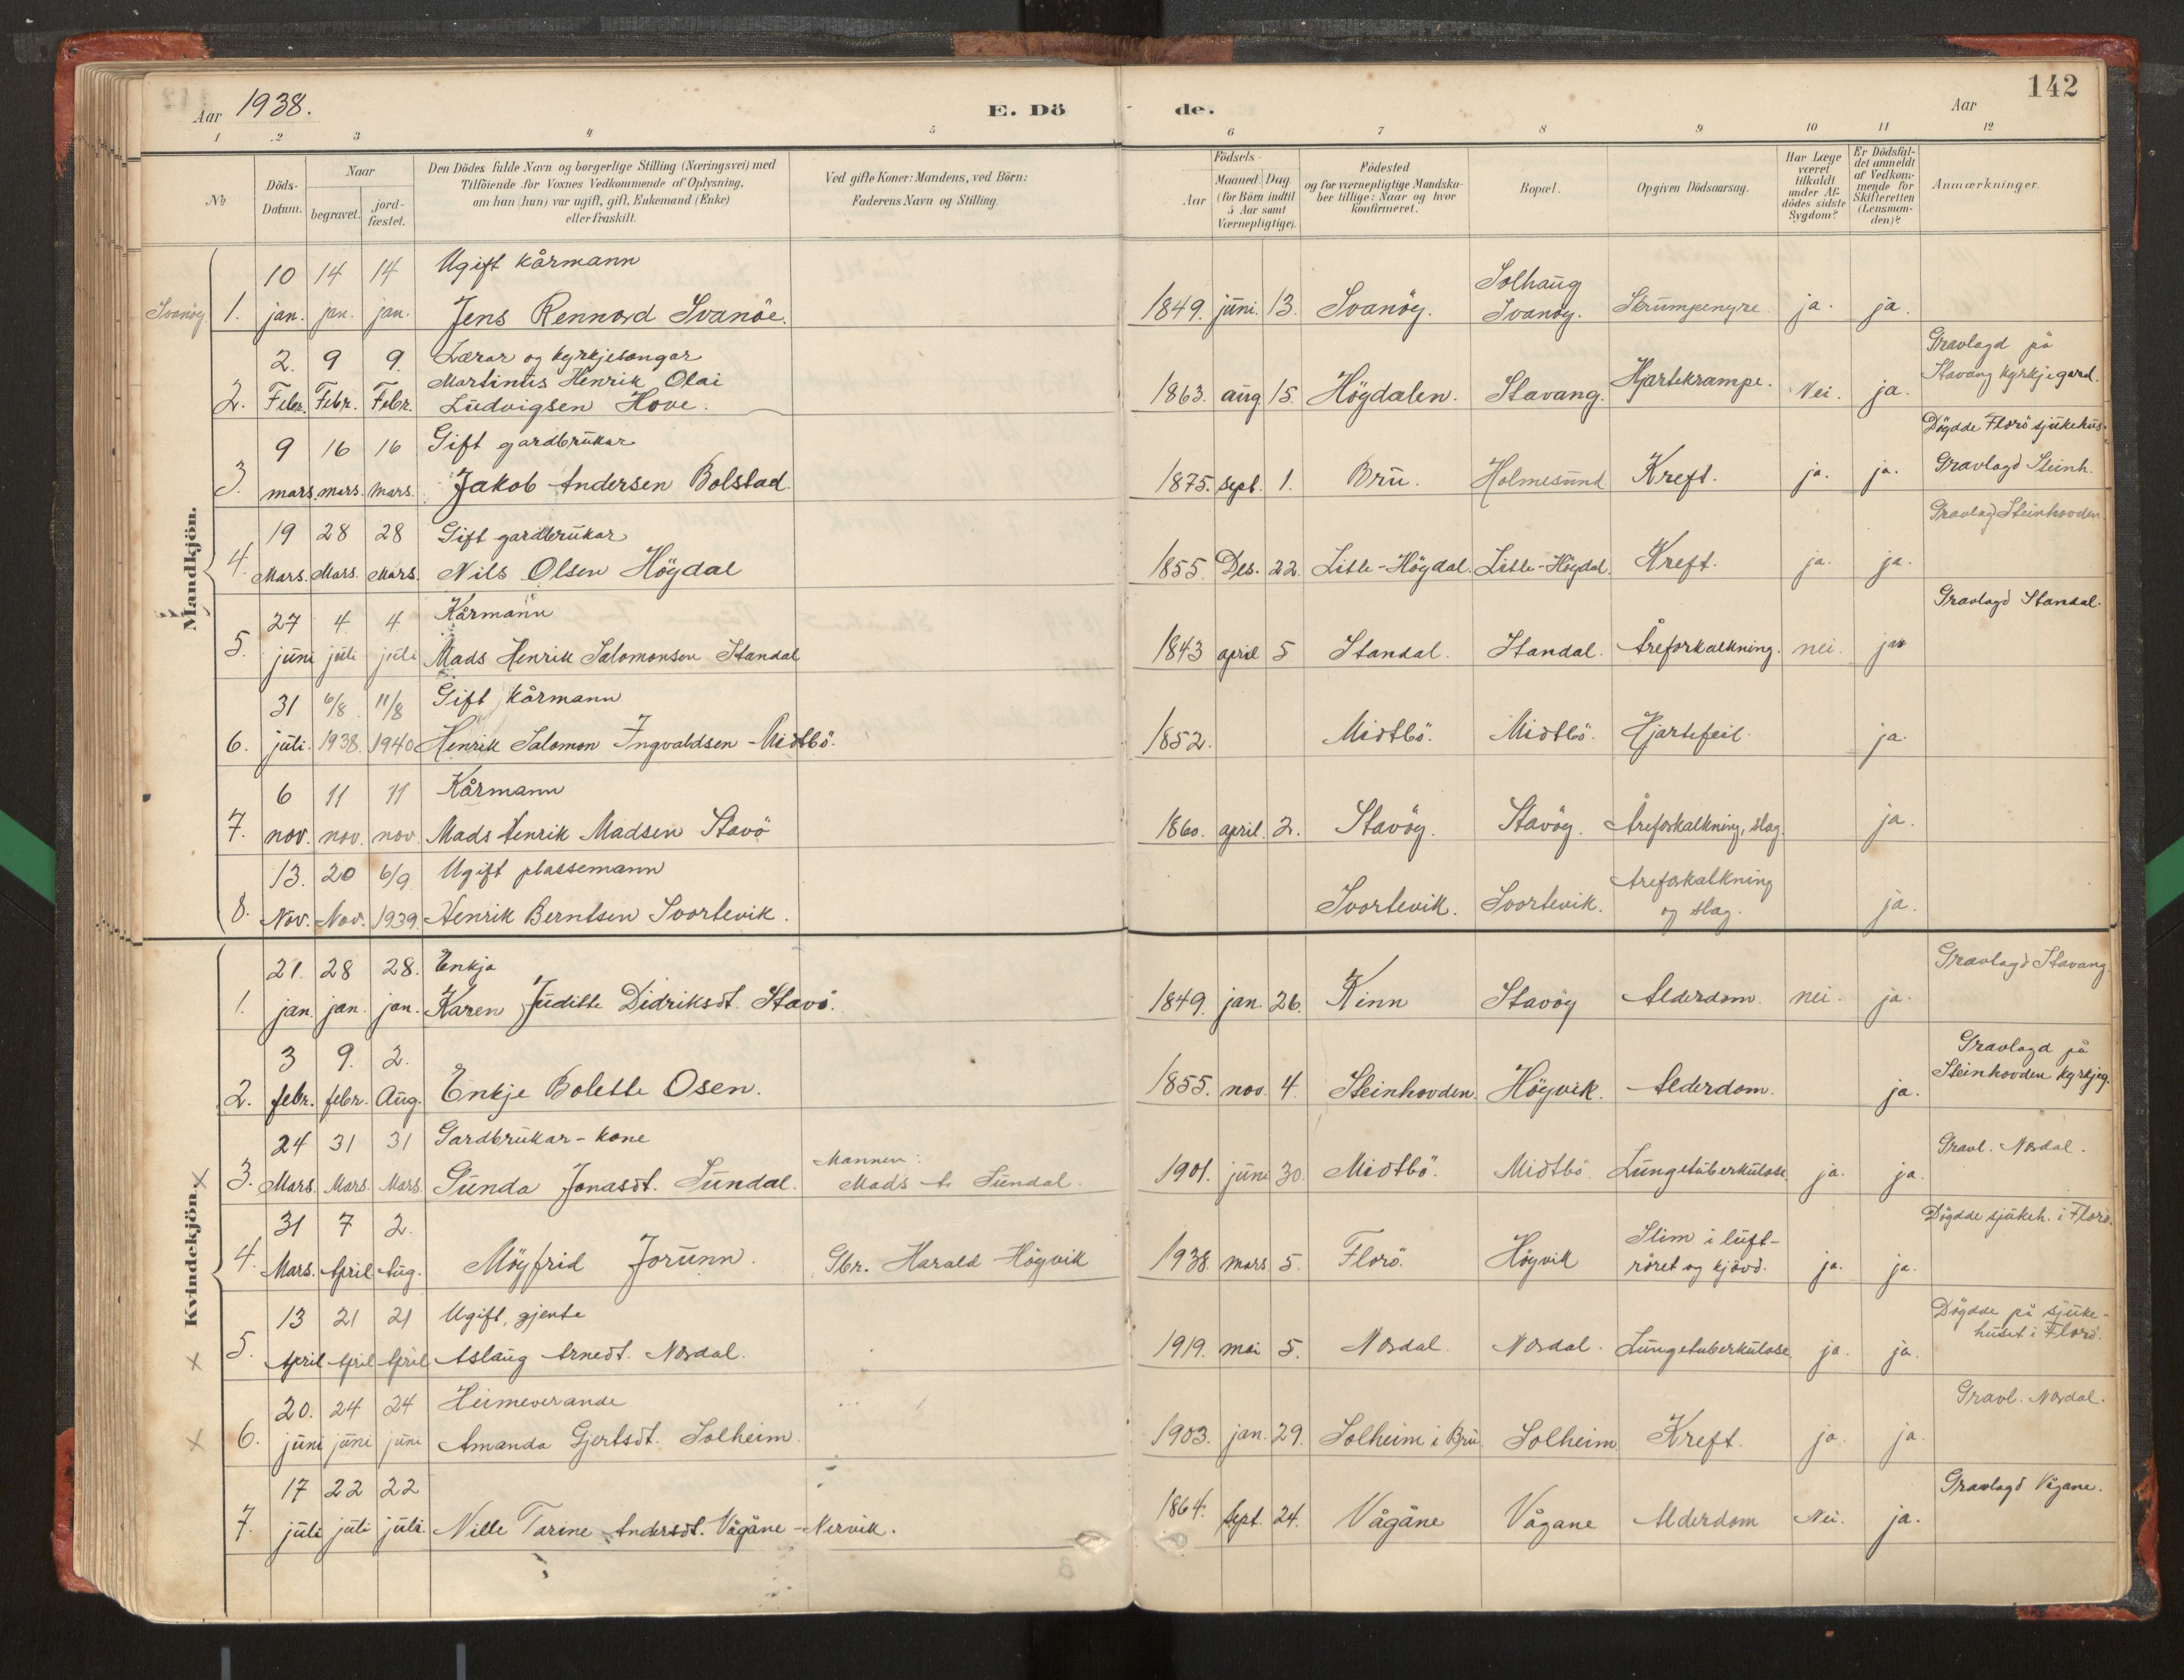 142
Aar 1938.
E. Dö de.
Aar
1 2 3 4 5 6 7 8 9 10 11 12
No
Döds-
Datum.
Naar
begravet.
jord-
fæstet.
Den Dödes fulde Navn og borgerlige Stilling (Næringsvei) med
Tilföiende for Voxnes Vedkommende af Oplysning,
om han (hun) var ugift, gift, Enkemand (Enke)
eller fraskilt.
Ved gifte Koner: Mandens, ved Börn:
Faderens Navn og Stilling.
Födsels-
Aar
Maaned. Dag
(for Börn indtil
5 Aar samt
Værnepligtige).
Födested
og for værnepligtige Mandska-
ber tillige: Naar og hvor
konfirmeret.
Bopæl.
Opgiven Dödsaarsag.
Har Læge
været
tilkaldt
under Af-
dödes sidste
Sygdom?
Er Dödsfal-
det anmeldt
af Vedkom-
mende for
Skifteretten
(Lensman-
den)?
Anmærkninger.
Mandkjön.
10 14 14 Ugift kårmann
Solhaug
Svanöy 1. jan. jan. jan. Jens Rennord Svanöe. 1849. juni 13. Svanöy. Svanöy. Skrumpenyre ja. ja.
2. 9 9. Lærar og kyrkjesongar Gravlagd på
Martinus Henrik Olai Stavang kyrkjegard.
2. Febr. Febr. Febr. Ludvigsen Hove. 1863. aug 15. Högdalen. Stavang. Hjartekrampe. Nei. ja.
9 16 16 Gift gardbrukar Döydde Florö sjukehus.
3. mars. mars. mars. Jakob Andersen Bolstad. 1875. sept. 1. Bru. Holmesund Kreft. ja. ja. Gravlagd Steinh.
19 28 28 Gift gardbrukar Gravlagd Steinhovden
4. Mars. Mars. Mars. Nils Olsen Högdal 1855. Des. 22. Litle-Högdal. Litle-Högdal. Kreft. ja. ja.
27 4 4 Kårmann Gravlagd Standal.
5. juni juli juli Mads Henrik Salomonsen Standal 1843 april 5 Standal. Standal. Åreforkalkning. nei. ja
31 6/8 11/8 Gift kårmann
6. juli. 1938. 1940 Henrik Salomon Ingvaldsen Midtbö. 1852. Midtbö. Midtbö. Hjartefeil. ja.
6 11 11 Kårmann
7. nov. nov. nov Mads Henrik Madsen Stavö 1860. april. 2. Stavöy. Stavöy. Åreforkalkning, slag. ja.
13. 20 6/9. Ugift plassemann Åreforkalkning
8. Nov. Nov. 1939. Henrik Berntsen Svortevik. Svortevik. Svortevik. og slag. ja.
Kvindekjön.
21. 28 28. Enkja Gravlagd Stavang.
1. jan. jan. jan. Karen Juditte Didriksdt. Stavö. 1849. jan. 26. Kinn Stavöy Alderdom. nei. ja.
3 9. 2. Gravlagd på
2. febr. febr. Aug. Enkje Bolette Osen. 1855. nov. 4. Steinhovden. Högvik. Alderdom. ja. Steinhovden kyrkjeg.
24 31 31 Gardbrukar-kone Mannen: Gravl. Nordal.
x 3. Mars. Mars. Mars. Gunda Jonasdt. Sundal. Mads A. Sundal. 1901. juni 30. Midtbö. Midtbö Lungetuberkulose. ja. ja.
31 7 2. Slim i luft- Döydde sjukeh. i Florö.
4. Mars. April Aug. Möyfrid Jorunn. Gbr. Harald Högvik 1938. mars 5. Florö. Högvik röret og kjövd. ja. ja.
13 21 21 Ugift, gjente Döydde på sjuke-
huset i Florö.
x 5. April April April Aslaug Arnedt. Nordal. 1919. mai 5. Nordal. Nordal. Lungetuberkulose ja. ja.
20. 24 24 Heimeverande Gravl. Nordal.
x 6. juni juni juni Amanda Gjertsdt. Solheim. 1903. jan. 29. Solheim i Bru. Solheim Kreft. ja. ja.
17 22 22 Gravlagd Vågane.
7. juli juli juli. Nille Tarine Andersdt. Vågane-Nervik. 1864. sept. 24. Vågane Vågane Alderdom Nei. ja.